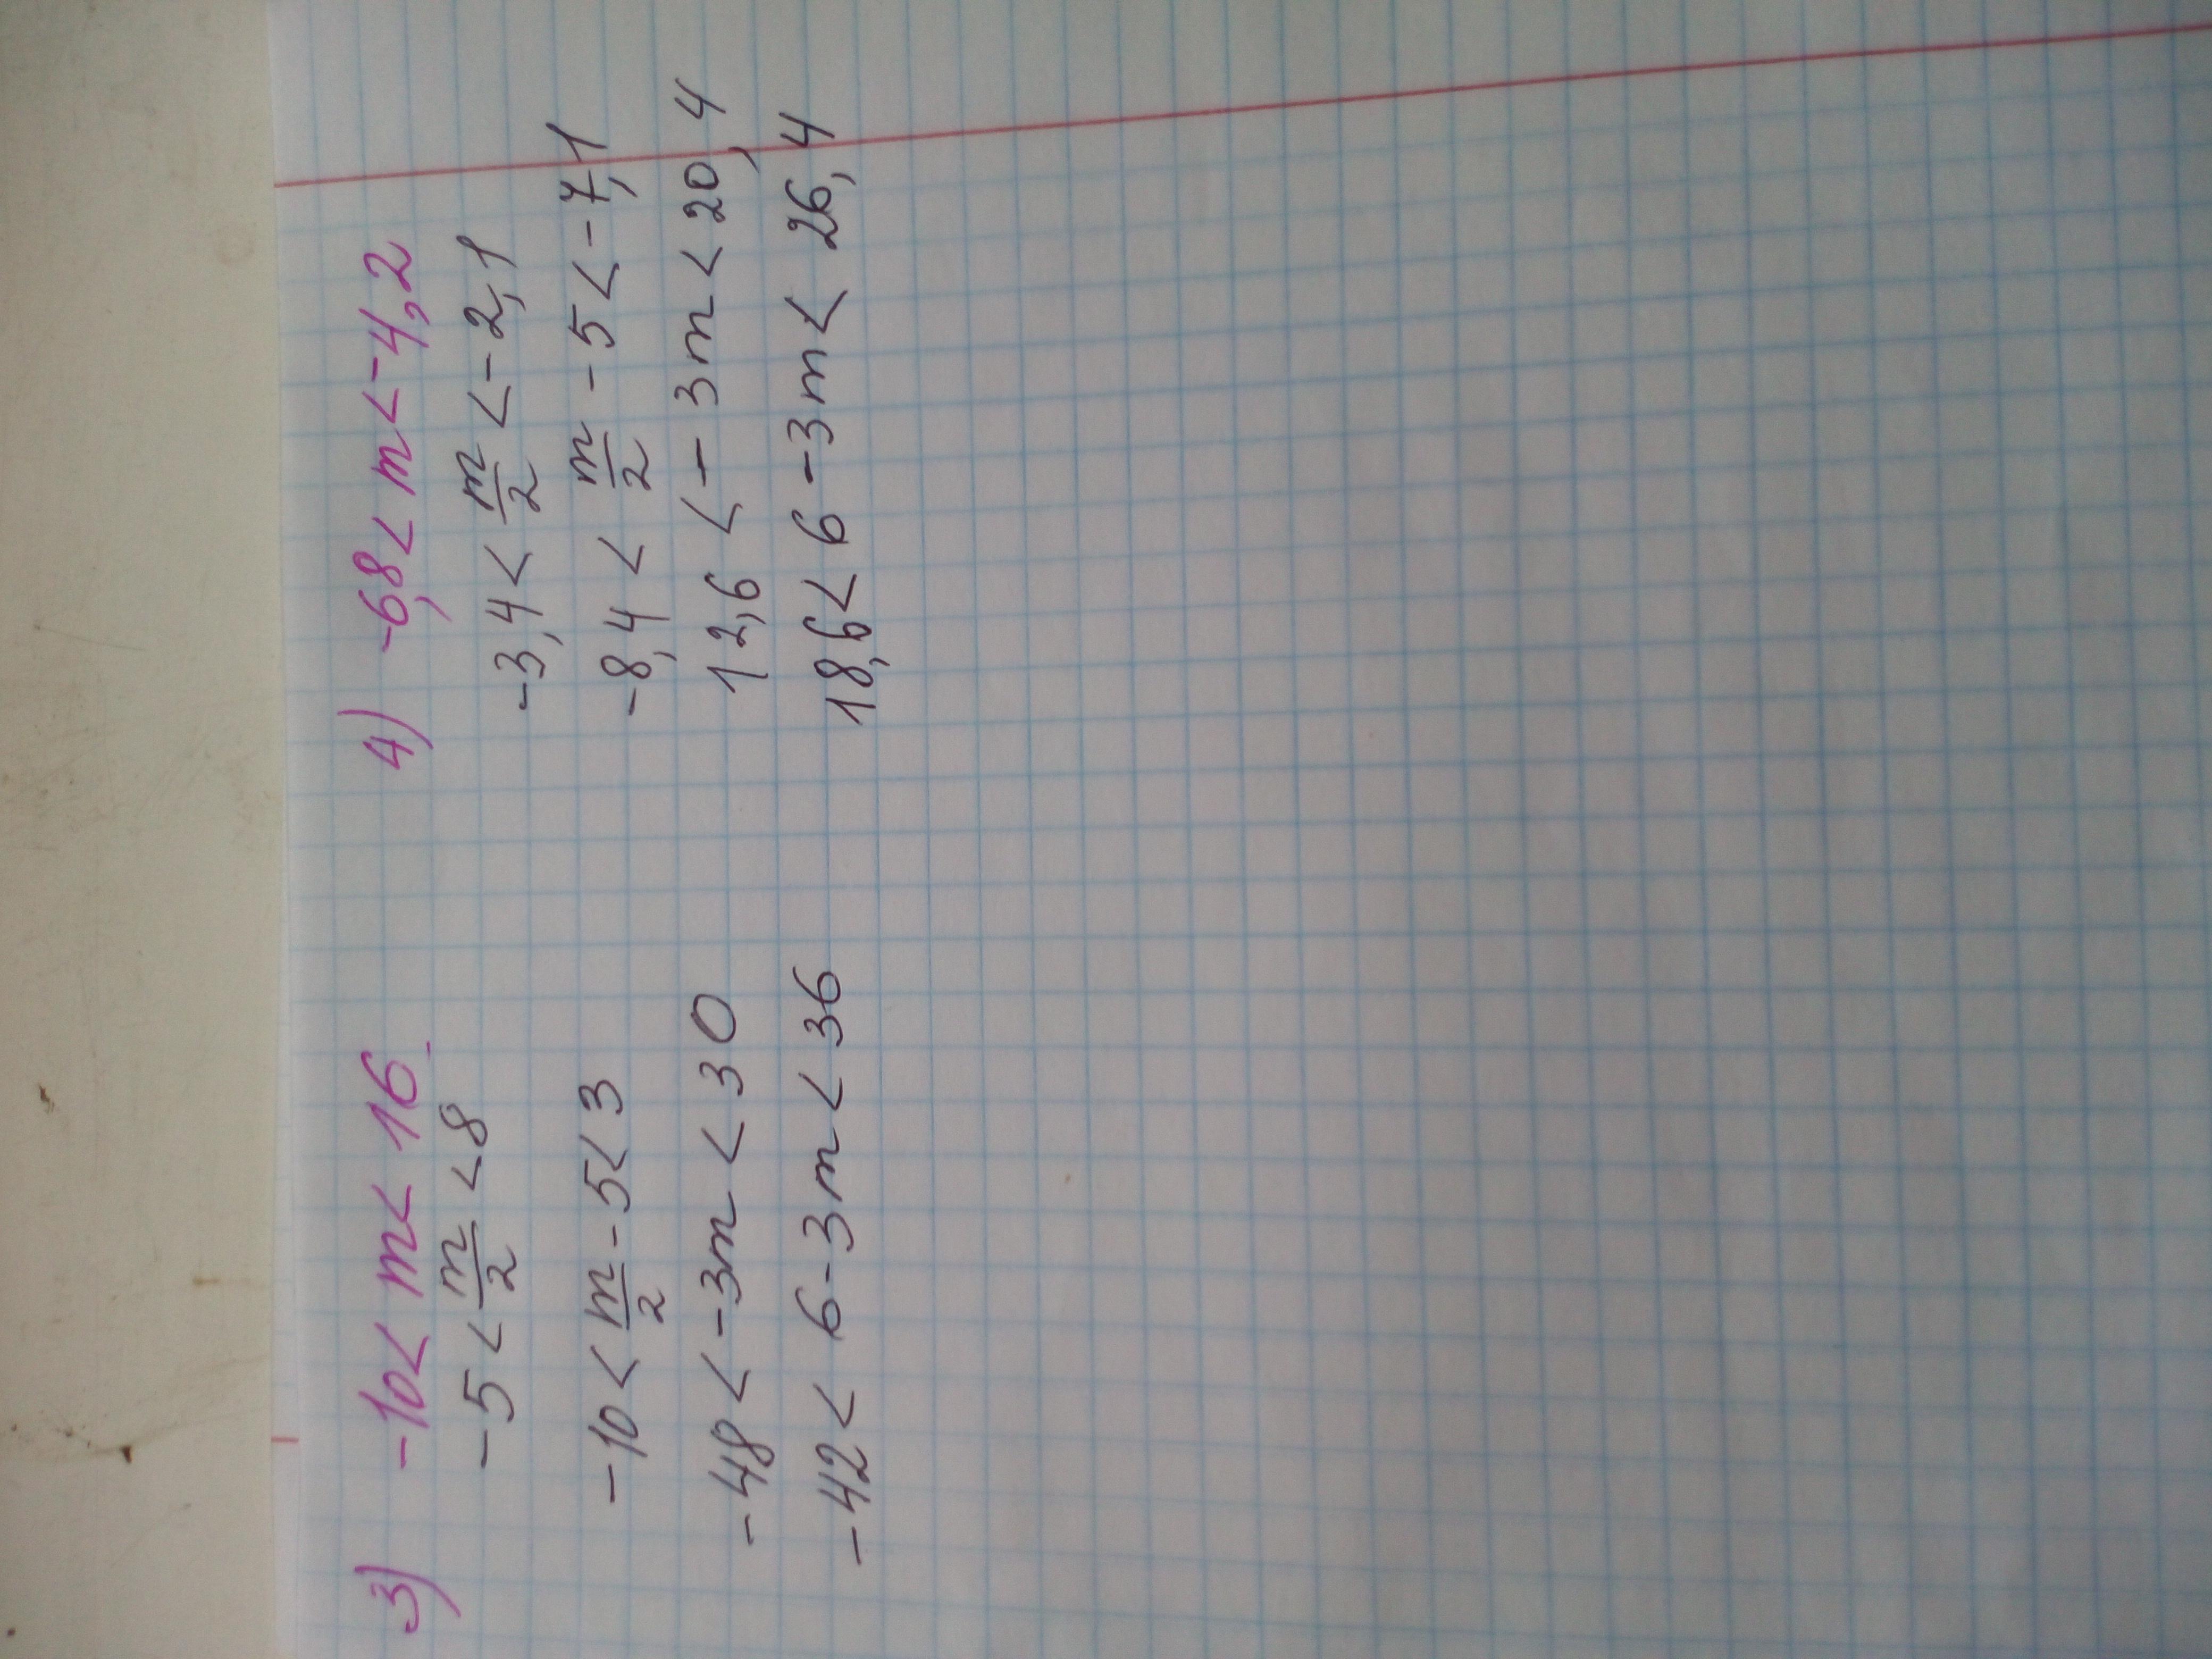 3) -10 < m < 16
-5 < m/2 < 8
-10 < m/2 - 5 < 3
-48 < -3m < 30
-42 < 6 - 3m < 36
4) -6,8 < m < -4,2
-3,4 < m/2 < -2,1
-8,4 < m/2 - 5 < -7,1
12,6 < -3m < 20,4
18,6 < 6 - 3m < 26,4